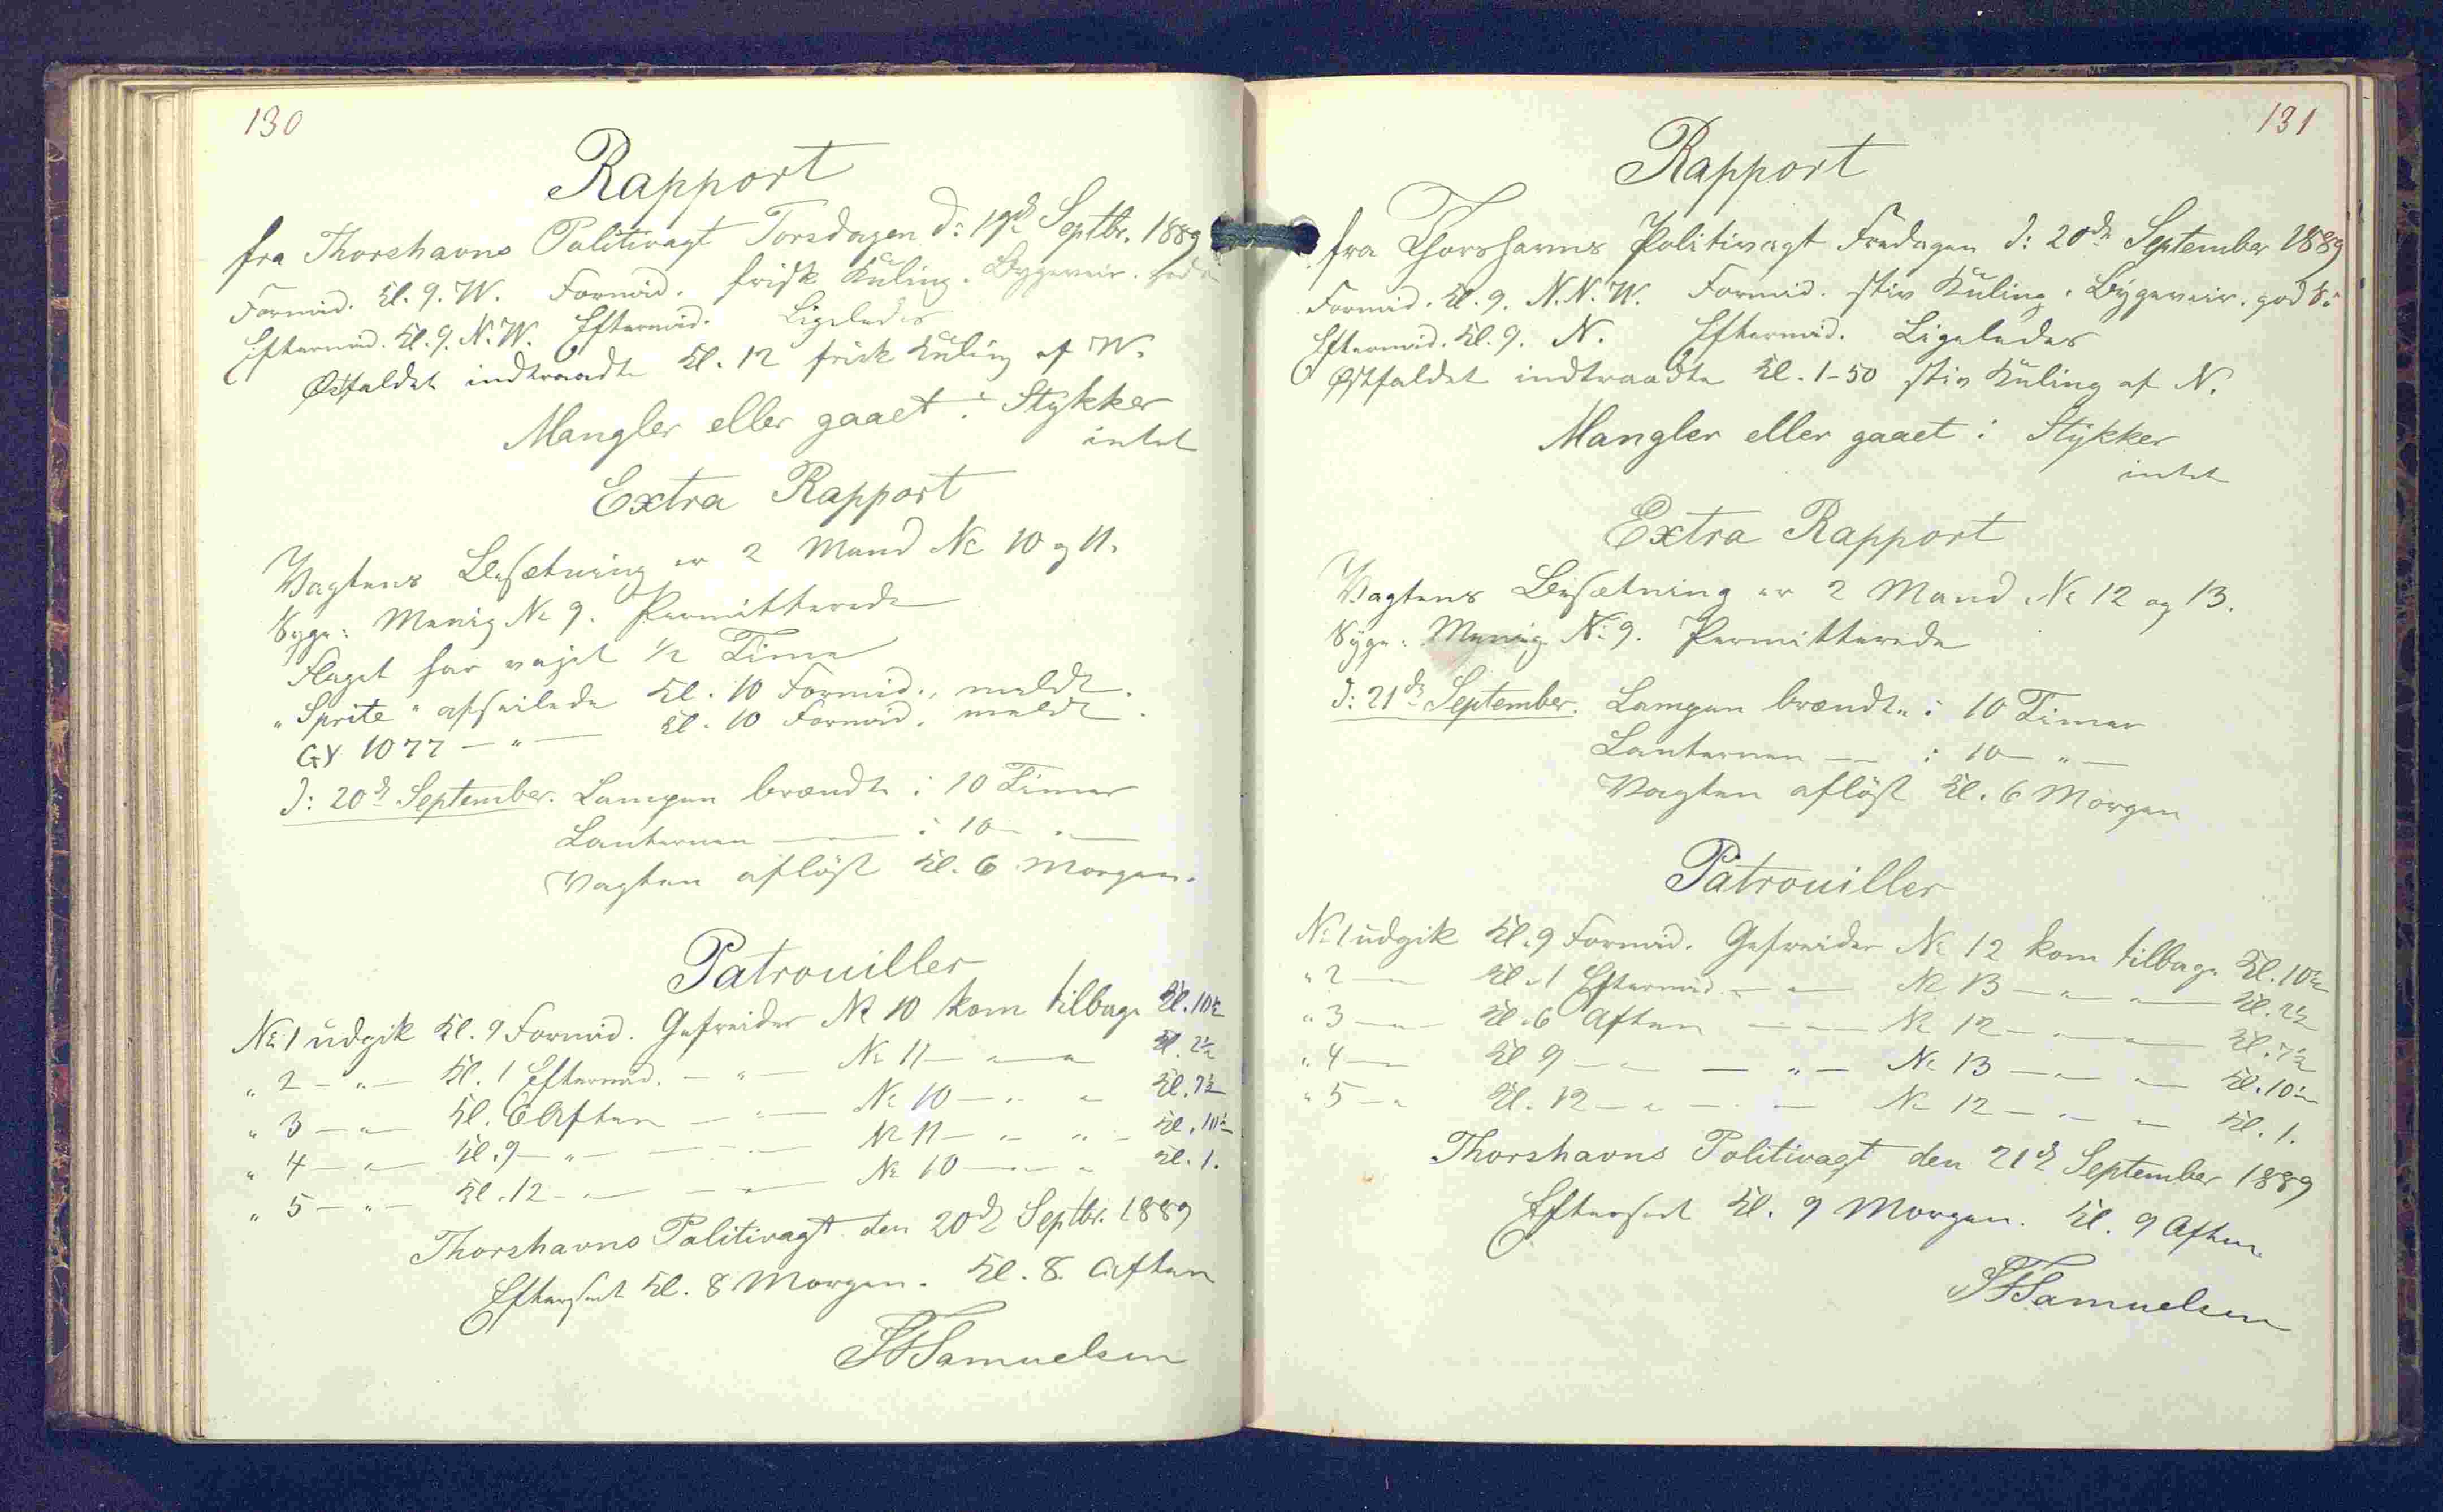 130
Rapport
fra Thorshavns Politivagt Torsdagen d: 19de Septbr. 1889
Formid. Kl. 9. W. Formid. frisk Kuling. Bygeveir. god S:
Eftermid. Kl. 9. N.W. Eftermid. Ligeledes
Østfaldet indtraadte Kl. 12 frisk Kuling af W.
Mangler eller gaaet i Stykker
intet
Extra Rapport
Vagtens Besætning er 2 Mand No 10 og 11.
Syge: Menig No 9. Permitterede
Flaget har vajet 1/2 Time
"Sprite" afseilede Kl. 10 Formid., meldt.
GY 1077 — " — Kl. 10 Formid. meldt.
D: 20de September. Lampen brændte i 10 Timer
Lanternen — i 10 — " —
Vagten afløst Kl. 6 Morgen.
Patrouiller
No 1 udgik Kl. 9 Formid. Gefreider No 10 kom tilbage Kl. 10½
" 2 — " — Kl. 1 Eftermid. — " — No 11 — " — " Kl. 2½
" 3 — " — Kl. 6 Aften — " — No 10 — " — " Kl. 7½
" 4 — " — Kl. 9 — " — — " — No 11 — " — " — Kl. 10½
" 5 — " — Kl. 12 — " — — " — No 10 — " — " Kl. 1.
Thorshavns Politivagt den 20de Septbr. 1889
Efterseet Kl. 8 Morgen. Kl. 8. Aften
Samuelsen
131
Rapport
fra Thorshavns Politivagt Fredagen d: 20de September 1889
Formid. Kl. 9. N.N.W. Formid. stiv Kuling. Bygeveir. god S:
Eftermid. Kl. 9. N. Eftermid. Ligeledes
Østfaldet indtraadte Kl. 1-50 stiv Kuling af N.
Mangler eller gaaet i Stykker
intet
Extra Rapport
Vagtens Besætning er 2 Mand No 12 og 13.
Syge: Menig No 9. Permitterede
D: 21de September. Lampen brændte i 10 Timer
Lanternen — i 10 — " —
Vagten afløst Kl. 6 Morgen
Patrouiller
No 1 udgik Kl. 9 Formid. Gefreider No 12 kom tilbage Kl. 10½
" 2 — " — Kl. 1 Eftermid. — " — No 13 — " — " — Kl. 2½
" 3 — " — Kl. 6 Aften — " — No 12 — " — " — Kl. 7½
" 4 — " — Kl 9 — " — — " — No 13 — " — " — Kl. 10½
" 5 — " Kl. 12 — " — " — No 12 — " — " — Kl. 1.
Thorshavns Politivagt den 21de September 1889
Efterseet Kl. 9 Morgen. Kl. 9 Aften.
Samuelsen